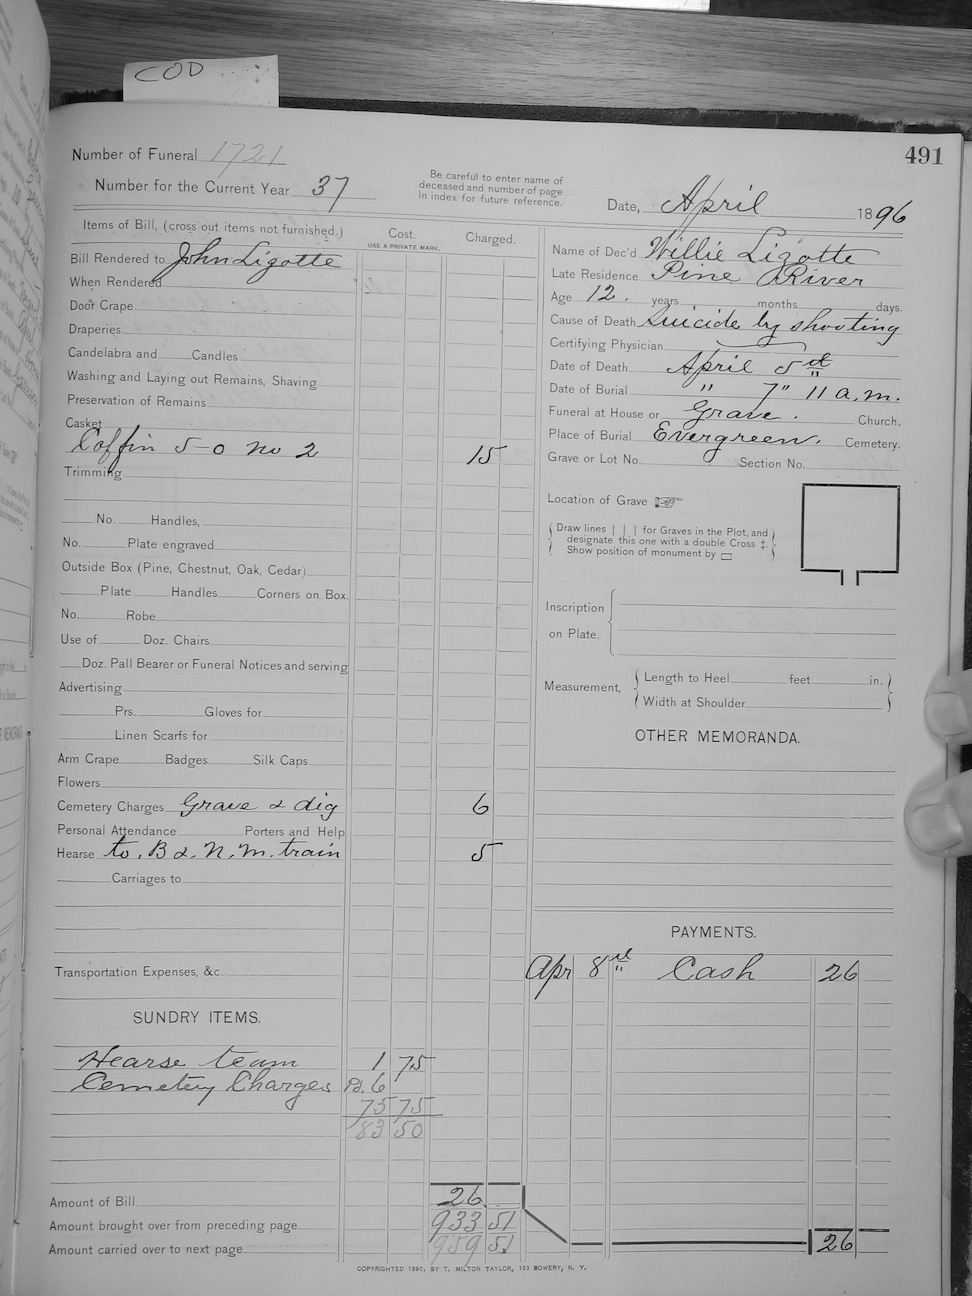 COD
491
Number of Funeral 1721
Number for the Current Year 37
Be careful to enter name of
deceased and number of page
in index for future reference.
Date, April 1896
Items of Bill, (cross out items not furnished.)
Cost.
USE A PRIVATE MARK.
Charged.
Bill Rendered to John Ligotte
When Rendered
Door Crape
Draperies
Candelabra and Candles
Washing and Laying out Remains, Shaving
Preservation of Remains
Casket
Coffin 5-0 no 2 15
Trimming
No. Handles,
No. Plate engraved
Outside Box (Pine, Chestnut, Oak, Cedar)
Plate Handles Corners on Box.
No. Robe
Use of Doz. Chairs
Doz. Pall Bearer or Funeral Notices and serving
Advertising
Prs. Gloves for
Linen Scarfs for
Arm Crape Badges Silk Caps
Flowers
Cemetery Charges Grave & dig 6
Personal Attendance Porters and Help
Hearse to, B & N. M. train 5
Carriages to
Transportation Expenses, &c.
SUNDRY ITEMS.
Hearse team 1 75
Cemetery Charges Pd. 6
75 75
83 50
Amount of Bill 26
Amount brought over from preceding page 933 51
Amount carried over to next page 959 51
Name of Dec'd Willie Ligotte
Late Residence Pine River
Age 12. years months days.
Cause of Death Suicide by shooting
Certifying Physician
Date of Death April 5th
Date of Burial " 7" 11 a.m.
Funeral at House or Grave. Church.
Place of Burial Evergreen. Cemetery.
Grave or Lot No. Section No.
Location of Grave
Draw lines | | | for Graves in the Plot, and
designate this one with a double Cross ‡.
Show position of monument by ▭
Inscription
on Plate.
Measurement,
Length to Heel feet in.
Width at Shoulder
OTHER MEMORANDA.
PAYMENTS.
Apr 8th Cash 26
26
COPYRIGHTED 1890, BY T. MILTON TAYLOR, 163 BOWERY, N. Y.